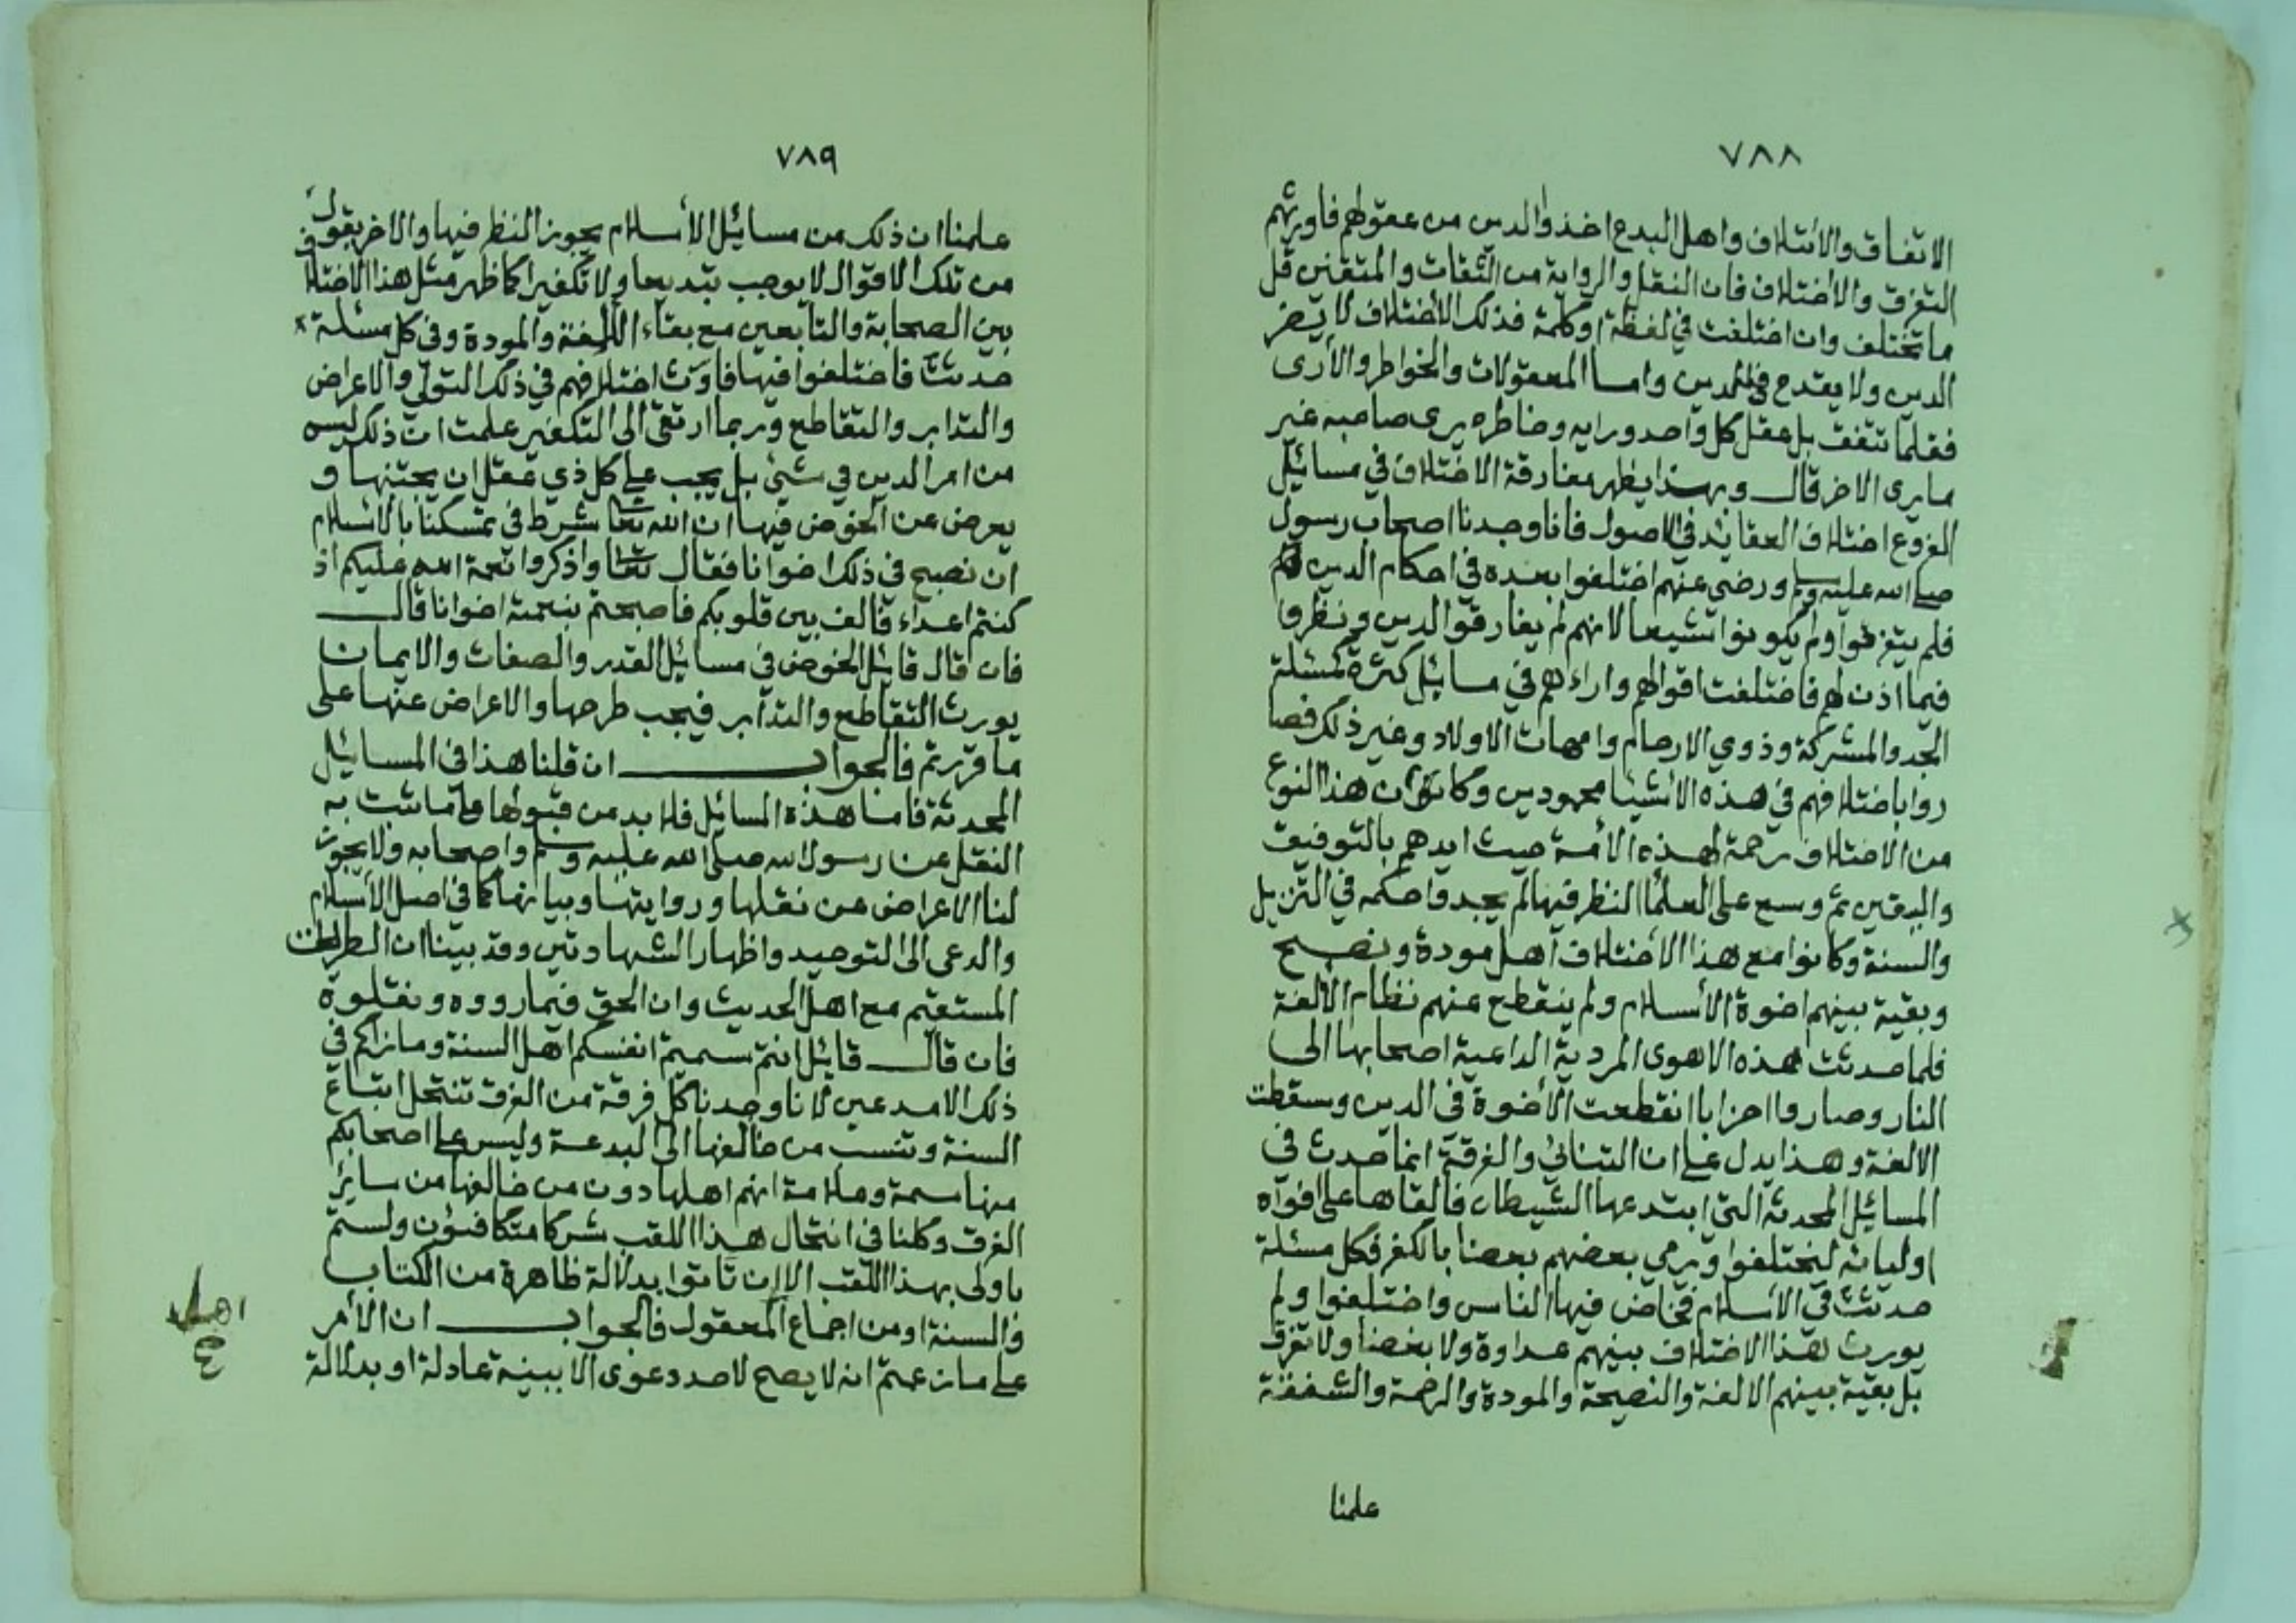 ٧٨٨
الاتفاق والائتلاف واهل البدع اخذوا الدين من عقولهم فاورثهم
التفرق والاختلاف فان النقل والرواية من الثقات والمتقنين قل
ما تختلف وان اختلفت في لفظة او كلمة فذلك الاختلاف لا يضر
الدين ولا يقدح في الدين واما المعقولات والخواطر والأرى
فقلما تتفق بل عقل كل واحد ورايه وخاطره يرى صاحبه غير
ما يرى الاخر قال وبهذا يظهر مفارقة الاختلاف في مسائيل
الفروع اختلاف العقايد في الاصول فانا وجدنا اصحاب رسول
صلى الله عليه وسلم ورضي عنهم اختلفوا بعده في احكام الدين
فلم يتفرقوا ولم يكونوا شيعا لانهم لم يفارقوا الدين ونظروا
فيما اذن لهم فاختلفت اقوالهم واراءهم في مسائيل كثرة كمسئلة
الجد والمشركة وذوي الارحام وامهات الاولاد وغير ذلك فصا
روا باختلافهم في هذه الأشيا محمودين وكان هذا النوع
من الاختلاف رحمة لهذه الأمة حيث ايدهم بالتوفيق
واليقين ثم وسع على العلما النظر فيما لم يجدوا حكمه في التنزيل
والسنة وكانوا مع هذا الاختلاف اهل مودة ونصح
وبقية بينهم اخوة الأسلام ولم ينقطع عنهم نظام الألفة
فلما حدثت هذه الاهوى المردية الداعية اصحابها الى
النار وصاروا احزابا انقطعت الأخوة في الدين وسقطت
الالفة وهذا يدل على ان التنائي والفرقة انما حدث في
المسائيل المحدثة التي ابتدعها الشيطان فالقاها على افواه
اوليائه ليختلفوا ويرمي بعضهم بعضا بالكفر فكل مسئلة
حدثت في الأسلام فخاض فيها الناس واختلفوا ولم
يورث هذا الاختلاف بينهم عداوة ولا بغضا ولا تفرق
بل بقية بينهم الالفة والنصيحة والمودة والرحمة والشفقة
علمنا
٧٨٩
علمنا ان ذلك من مسائيل الأسلام يجوز النظر فيها والاخر بقول
من تلك الاقوال لا يوجب تبديعا ولا تكفيرا كما ظهر مثل هذا الاختلاف
بين الصحابة والتابعين مع بقاء الألفة والمودة وفي كل مسئلة
حدثت فاختلفوا فيها فاورث اختلافهم في ذلك التولي والاعراض
والتدابر والتقاطع وربما ارتقى الى التكفير علمت ان ذلك ليس
من امر الدين في شيئ بل يجب على كل ذي عقل ان يجتنبها و
يعرض عن الخوض فيها ان الله تعا شرط في تمسكنا بالاسلام
ان نصبح في ذلك اخوانا فقال تعا واذكروا نعمة الله عليكم اذ
كنتم اعداء فالف بين قلوبكم فاصبحتم بنعمته اخوانا قال
فان قال قائيل الخوض في مسائيل القدر والصفات والايمان
يورث التقاطع والتدابر فيجب طرحها والاعراض عنها على
ما قررتم فالجواب ان قلنا هذا في المسائيل
المحدثة فاما هذه المسائيل فلا بد من قبولها على ما ثبت به
النقل عن رسول الله صلى الله عليه وسلم واصحابه ولا يجوز
لنا الاعراض عن نقلها وروايتها وبيانها كما في اصل الأسلام
والدعى الى التوحيد واظهار الشهادتين وقد بينا ان الطريق
المستقيم مع اهل الحديث وان الحق فيما رووه ونقلوه
فان قال قائيل انتم سميتم انفسكم اهل السنة وما نراكم في
ذلك الا مدعين لانا وجدنا كل فرقة من الفرق تنتحل اتباع
السنة وتنسب من خالفها الى البدعة وليس على اصحابكم
منها سمة وعلامة انهم اهلها دون من خالفها من سائر
الفرق وكلنا في انتحال هذا اللقب شركا متكافئون ولستم
باولى بهذا اللقب الا ان تاتوا بدلالة ظاهرة من الكتاب
والسنة او من اجماع المعقول فالجواب ان الأمر
على ما زعمتم انه لا يصح لاحد دعوى الا ببينة عادلة او بدلالة